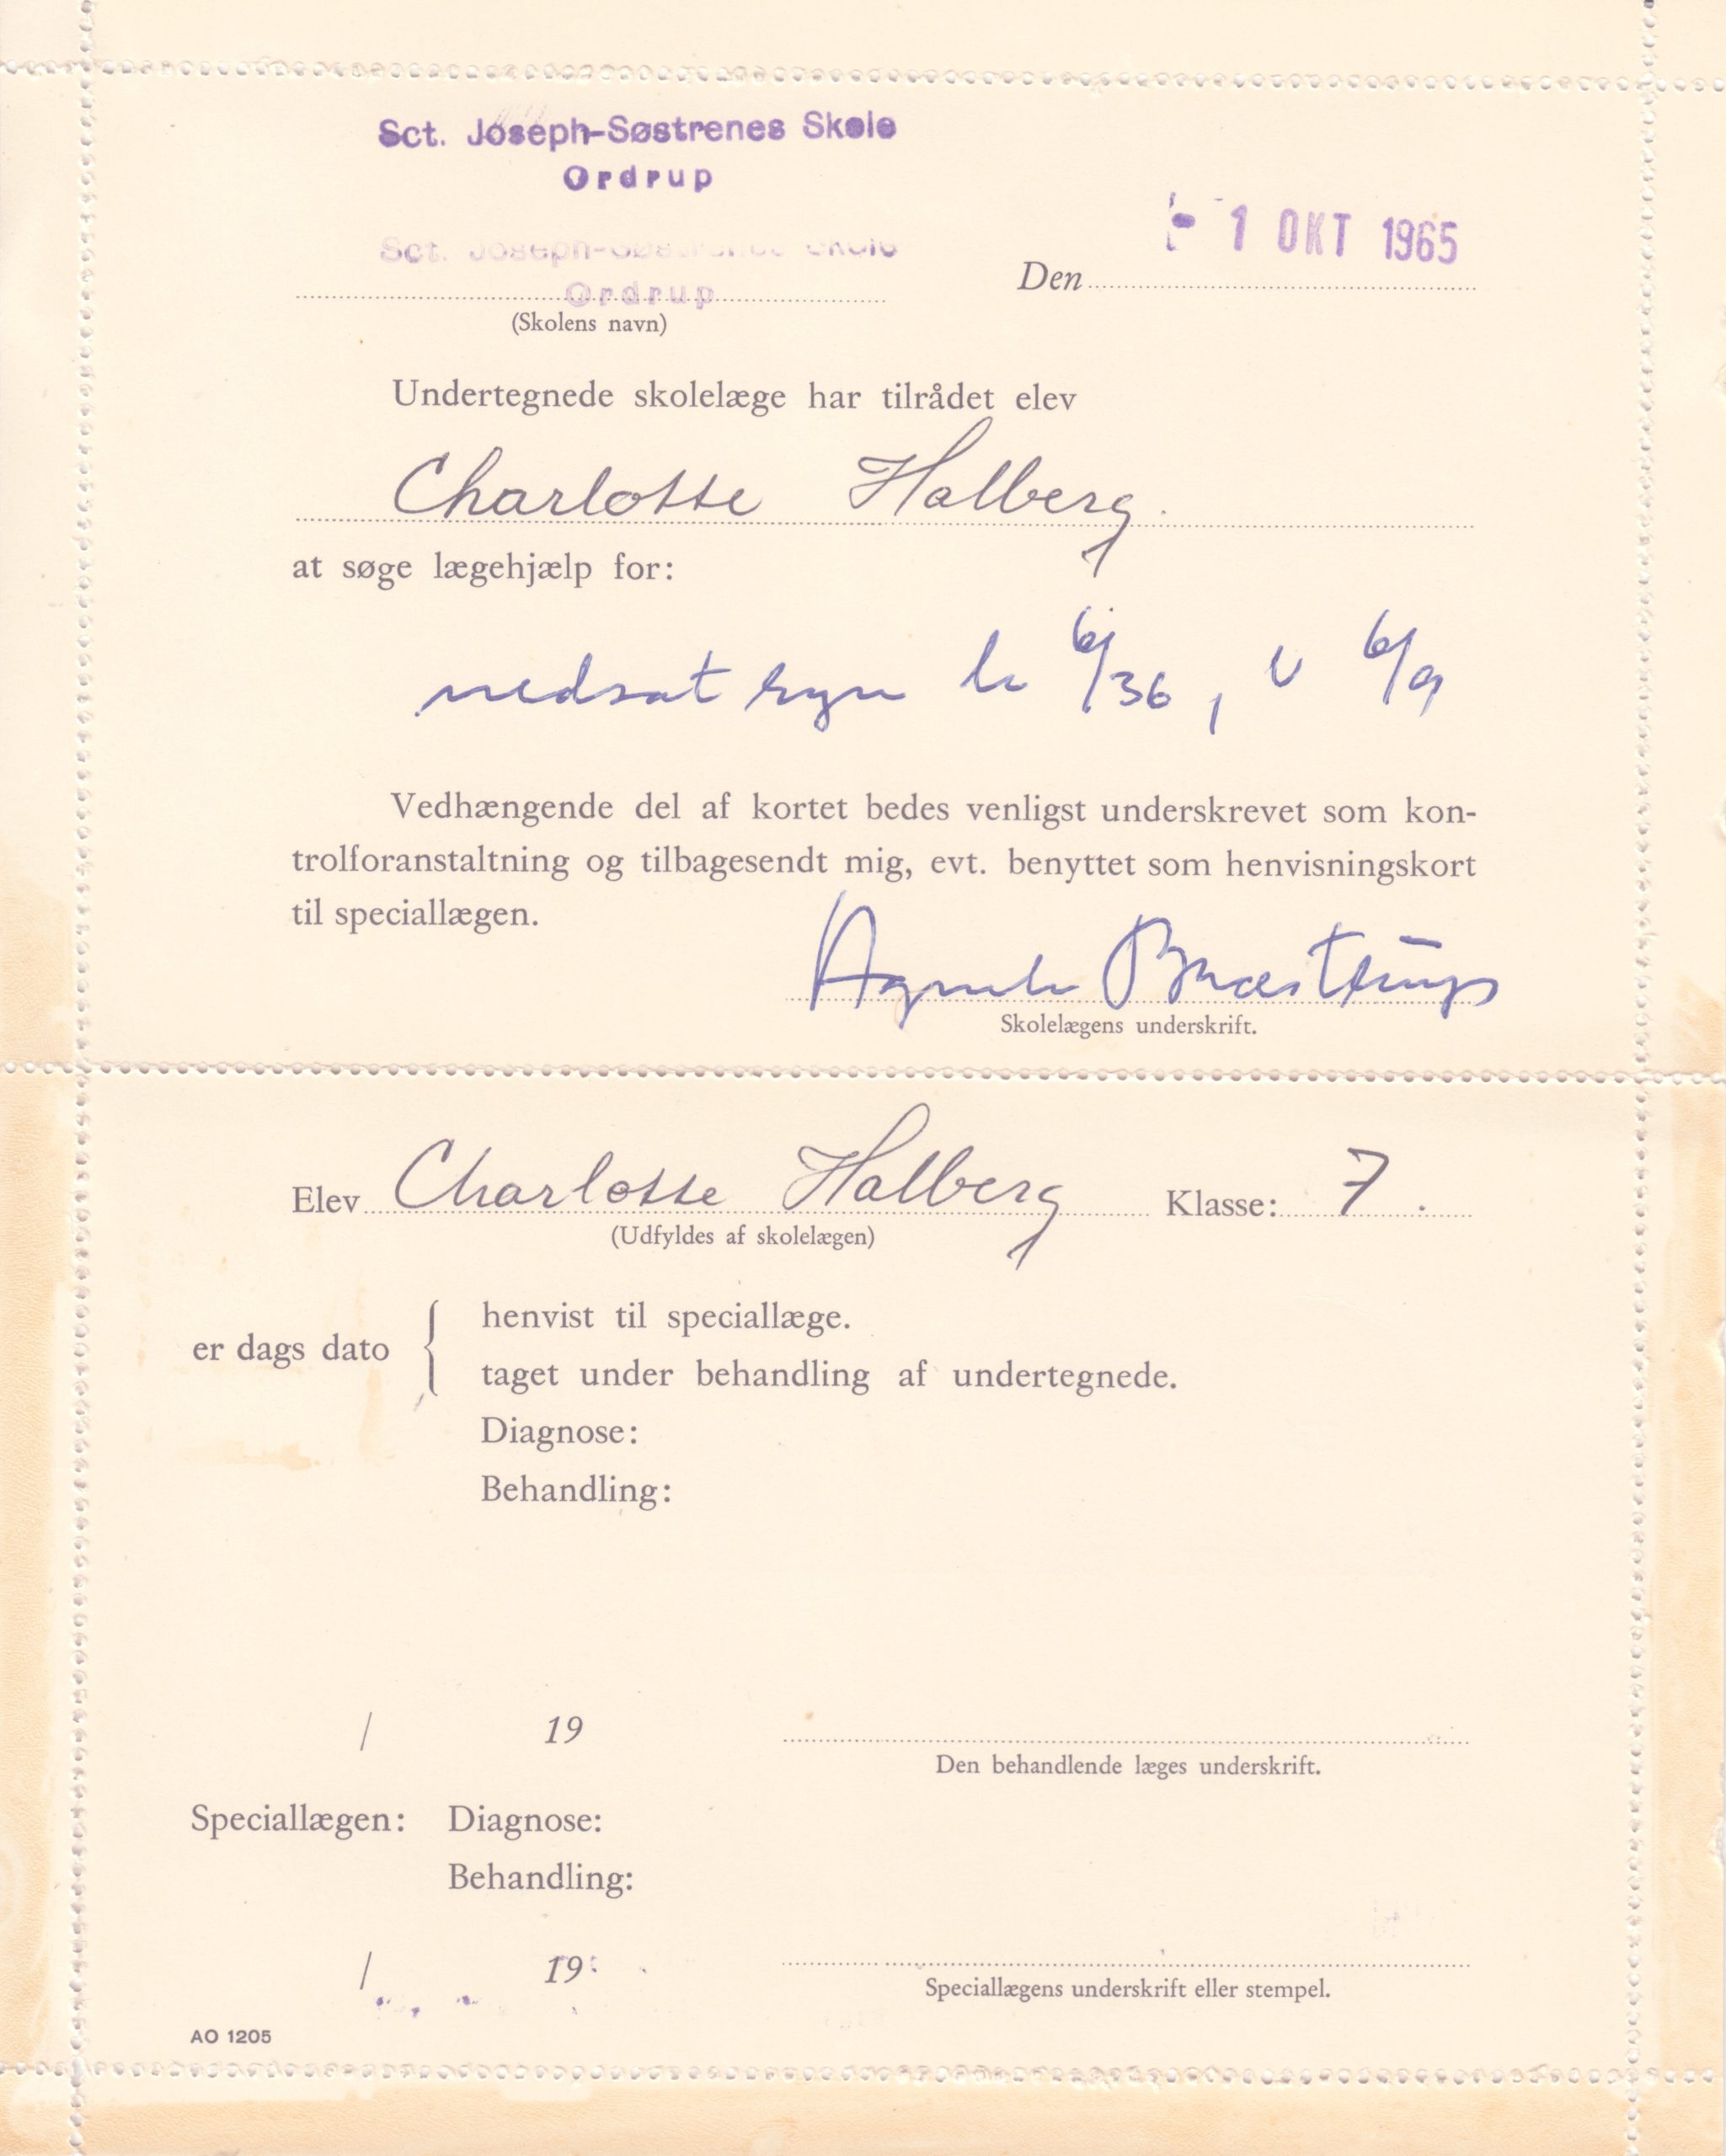 Sct. Joseph-Søstrenes Skole
Ordrup
Sct. Joseph-Søstrenes Skole
Ordrup
- 1 OKT 1965
Den
(Skolens navn)
Undertegnede skolelæge har tilrådet elev
Charlotte Halberg.
at søge lægehjælp for:
nedsat syn h 6/36, v 6/9
Vedhængende del af kortet bedes venligst underskrevet som kon-
trolforanstaltning og tilbagesendt mig, evt. benyttet som henvisningskort
til speciallægen.
Agnete Bræstrup
Skolelægens underskrift.
Elev Charlotte Halberg Klasse: 7.
(Udfyldes af skolelægen)
er dags dato { henvist til speciallæge.
taget under behandling af undertegnede.
Diagnose:
Behandling:
/ 19
Den behandlende læges underskrift.
Speciallægen: Diagnose:
Behandling:
/ 19
Speciallægens underskrift eller stempel.
AO 1205